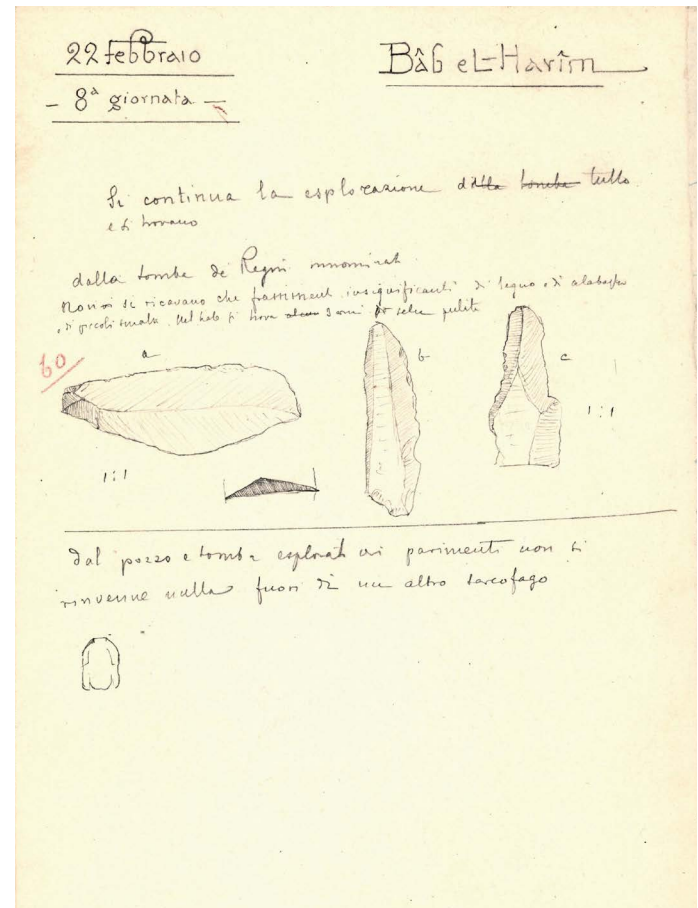 22 febbraio
Bâb el-Harîm
- 8ª giornata -
Si continua la esplorazione dalla tombe tutto
e si trovano
dalla tomba de Regni innominati
Non si ricavano che frammenti insignificanti di legno, di alabastro
, di piccoli smalti. Nel si trova 3 selce pulite
60
a
b
c
1:1
1:1
dal pozzo e tomba esplorati parimenti non si
rinvenne nulla fuori di un altro sarcofago